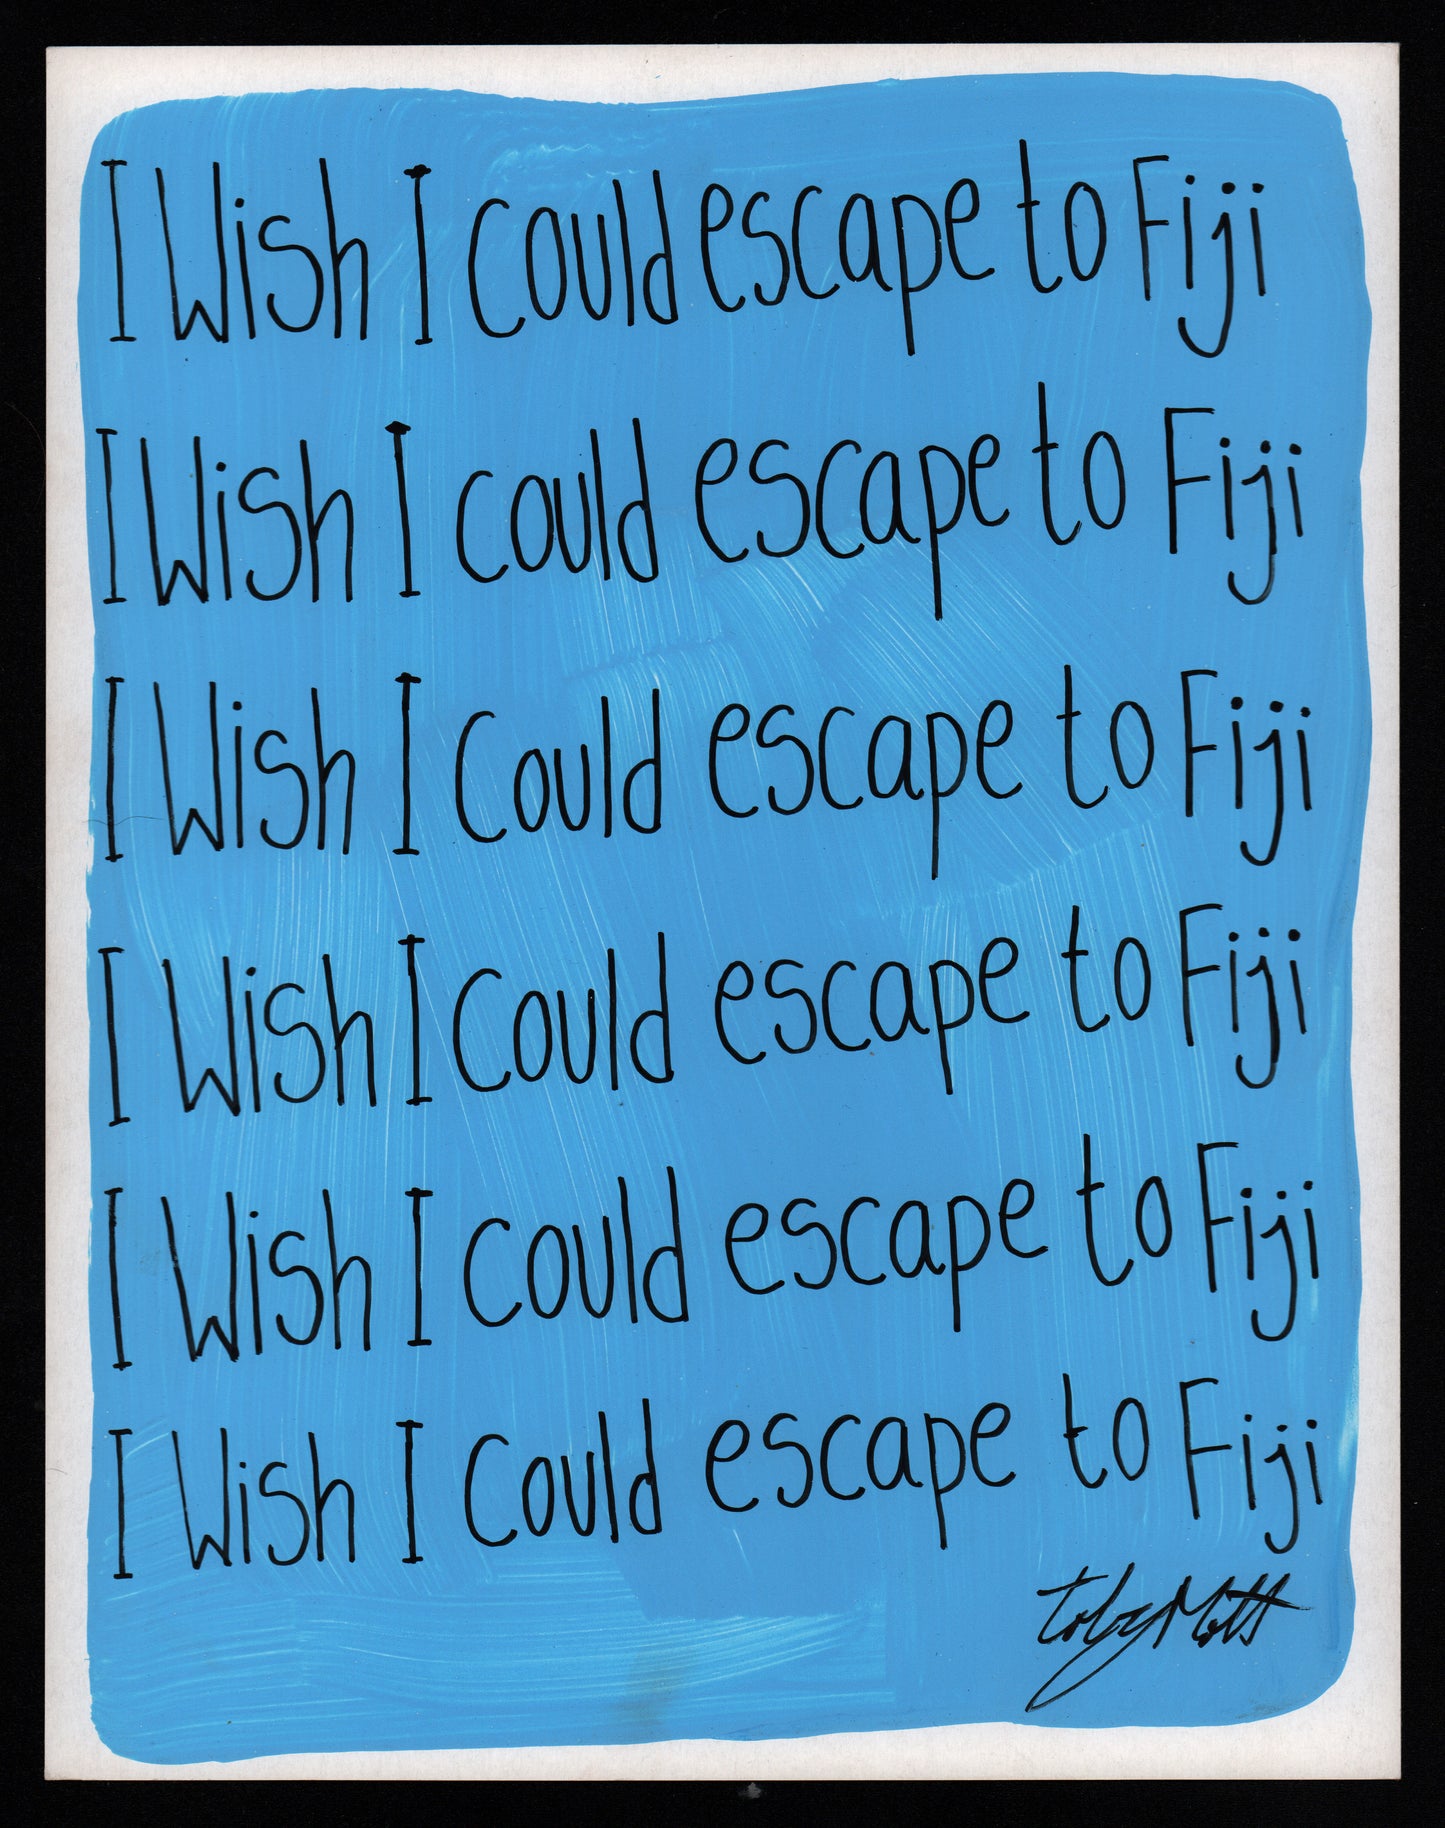 I Wish I could escape to Fiji
I Wish I could escape to Fiji
I Wish I Could escape to Fiji
I Wish I Could escape to Fiji
I Wish I could escape to Fiji
I Wish I Could escape to Fiji
toby Mott